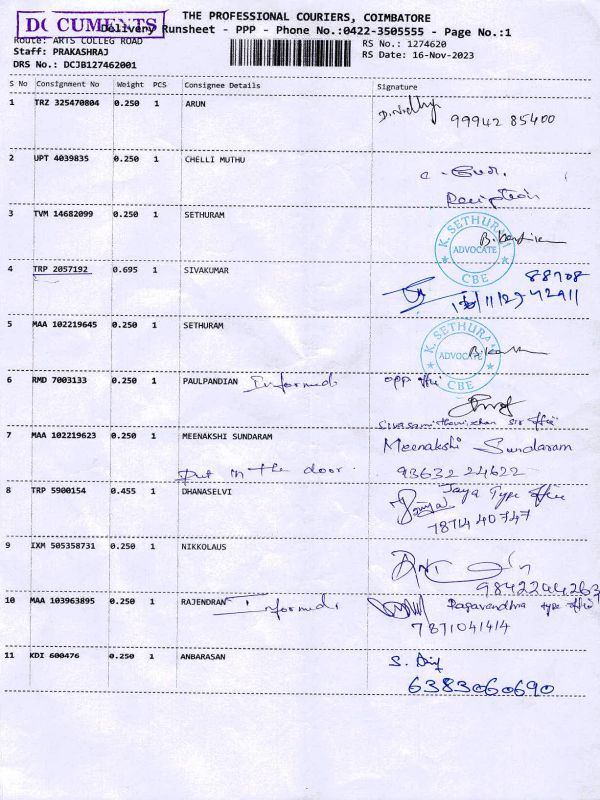 DOCUMENTS
THE PROFESSIONAL COURIERS, COIMBATORE
Delivery Runsheet - PPP - Phone No.:0422-3505555 - Page No.:1
Route: ARTS COLLEG ROAD
RS No.: 1274620
Staff: PRAKASHRAJ
RS Date: 16-Nov-2023
DRS No.: DCJB127462001
S No Consignment No Weight PCS Consignee Details Signature
1 TRZ 325470804 0.250 1 ARUN
99942 85400
2 UPT 4039835 0.250 1 CHELLI MUTHU
Reciption
3 TVM 14682099 0.250 1 SETHURAM
K. SETHURAM
ADVOCATE
CBE
4 TRP 2057192 0.695 1 SIVAKUMAR
88708
42911
5 MAA 102219645 0.250 1 SETHURAM
K. SETHURAM
ADVOCATE
CBE
6 RMD 7003133 0.250 1 PAULPANDIAN Informed opp office
7 MAA 102219623 0.250 1 MEENAKSHI SUNDARAM Meenakshi Sundaram
Put in the door. 93632 24622
8 TRP 5900154 0.455 1 DHANASELVI Jaya Type office
78714 40747
9 IXM 505358731 0.250 1 NIKKOLAUS
9842244263
10 MAA 103963895 0.250 1 RAJENDRAN Informed type office
7871041414
11 KDI 600476 0.250 1 ANBARASAN
6383060690